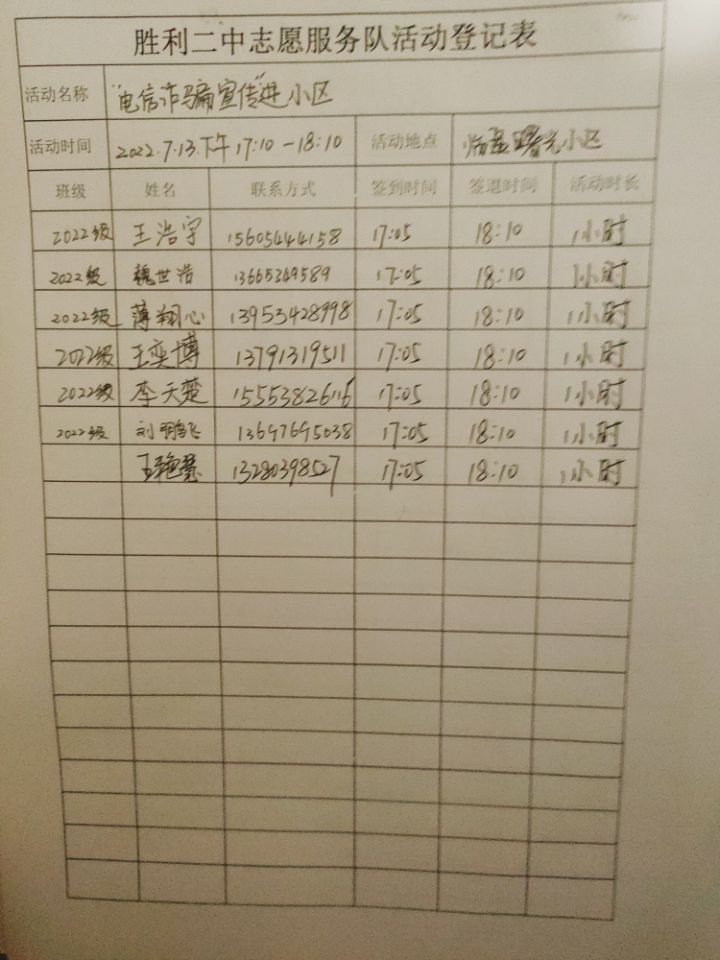 胜利二中志愿服务队活动登记表
活动名称 "电信诈骗宣传"进小区
活动时间 2022.7.13.下午17:10-18:10 活动地点 曙光小区
班级 姓名 联系方式 签到时间 签退时间 活动时长
2022级 王浩宇 15605444158 17:05 18:10 1小时
2022级 魏世浩 13665349589 17:05 18:10 1小时
2022级 薄翔心 13953428998 17:05 18:10 1小时
2022级 王奕博 13791319511 17:05 18:10 1小时
2022级 李天楚 15553826116 17:05 18:10 1小时
2022级 刘鹏飞 13697695038 17:05 18:10 1小时
王艳慧 13280398527 17:05 18:10 1小时